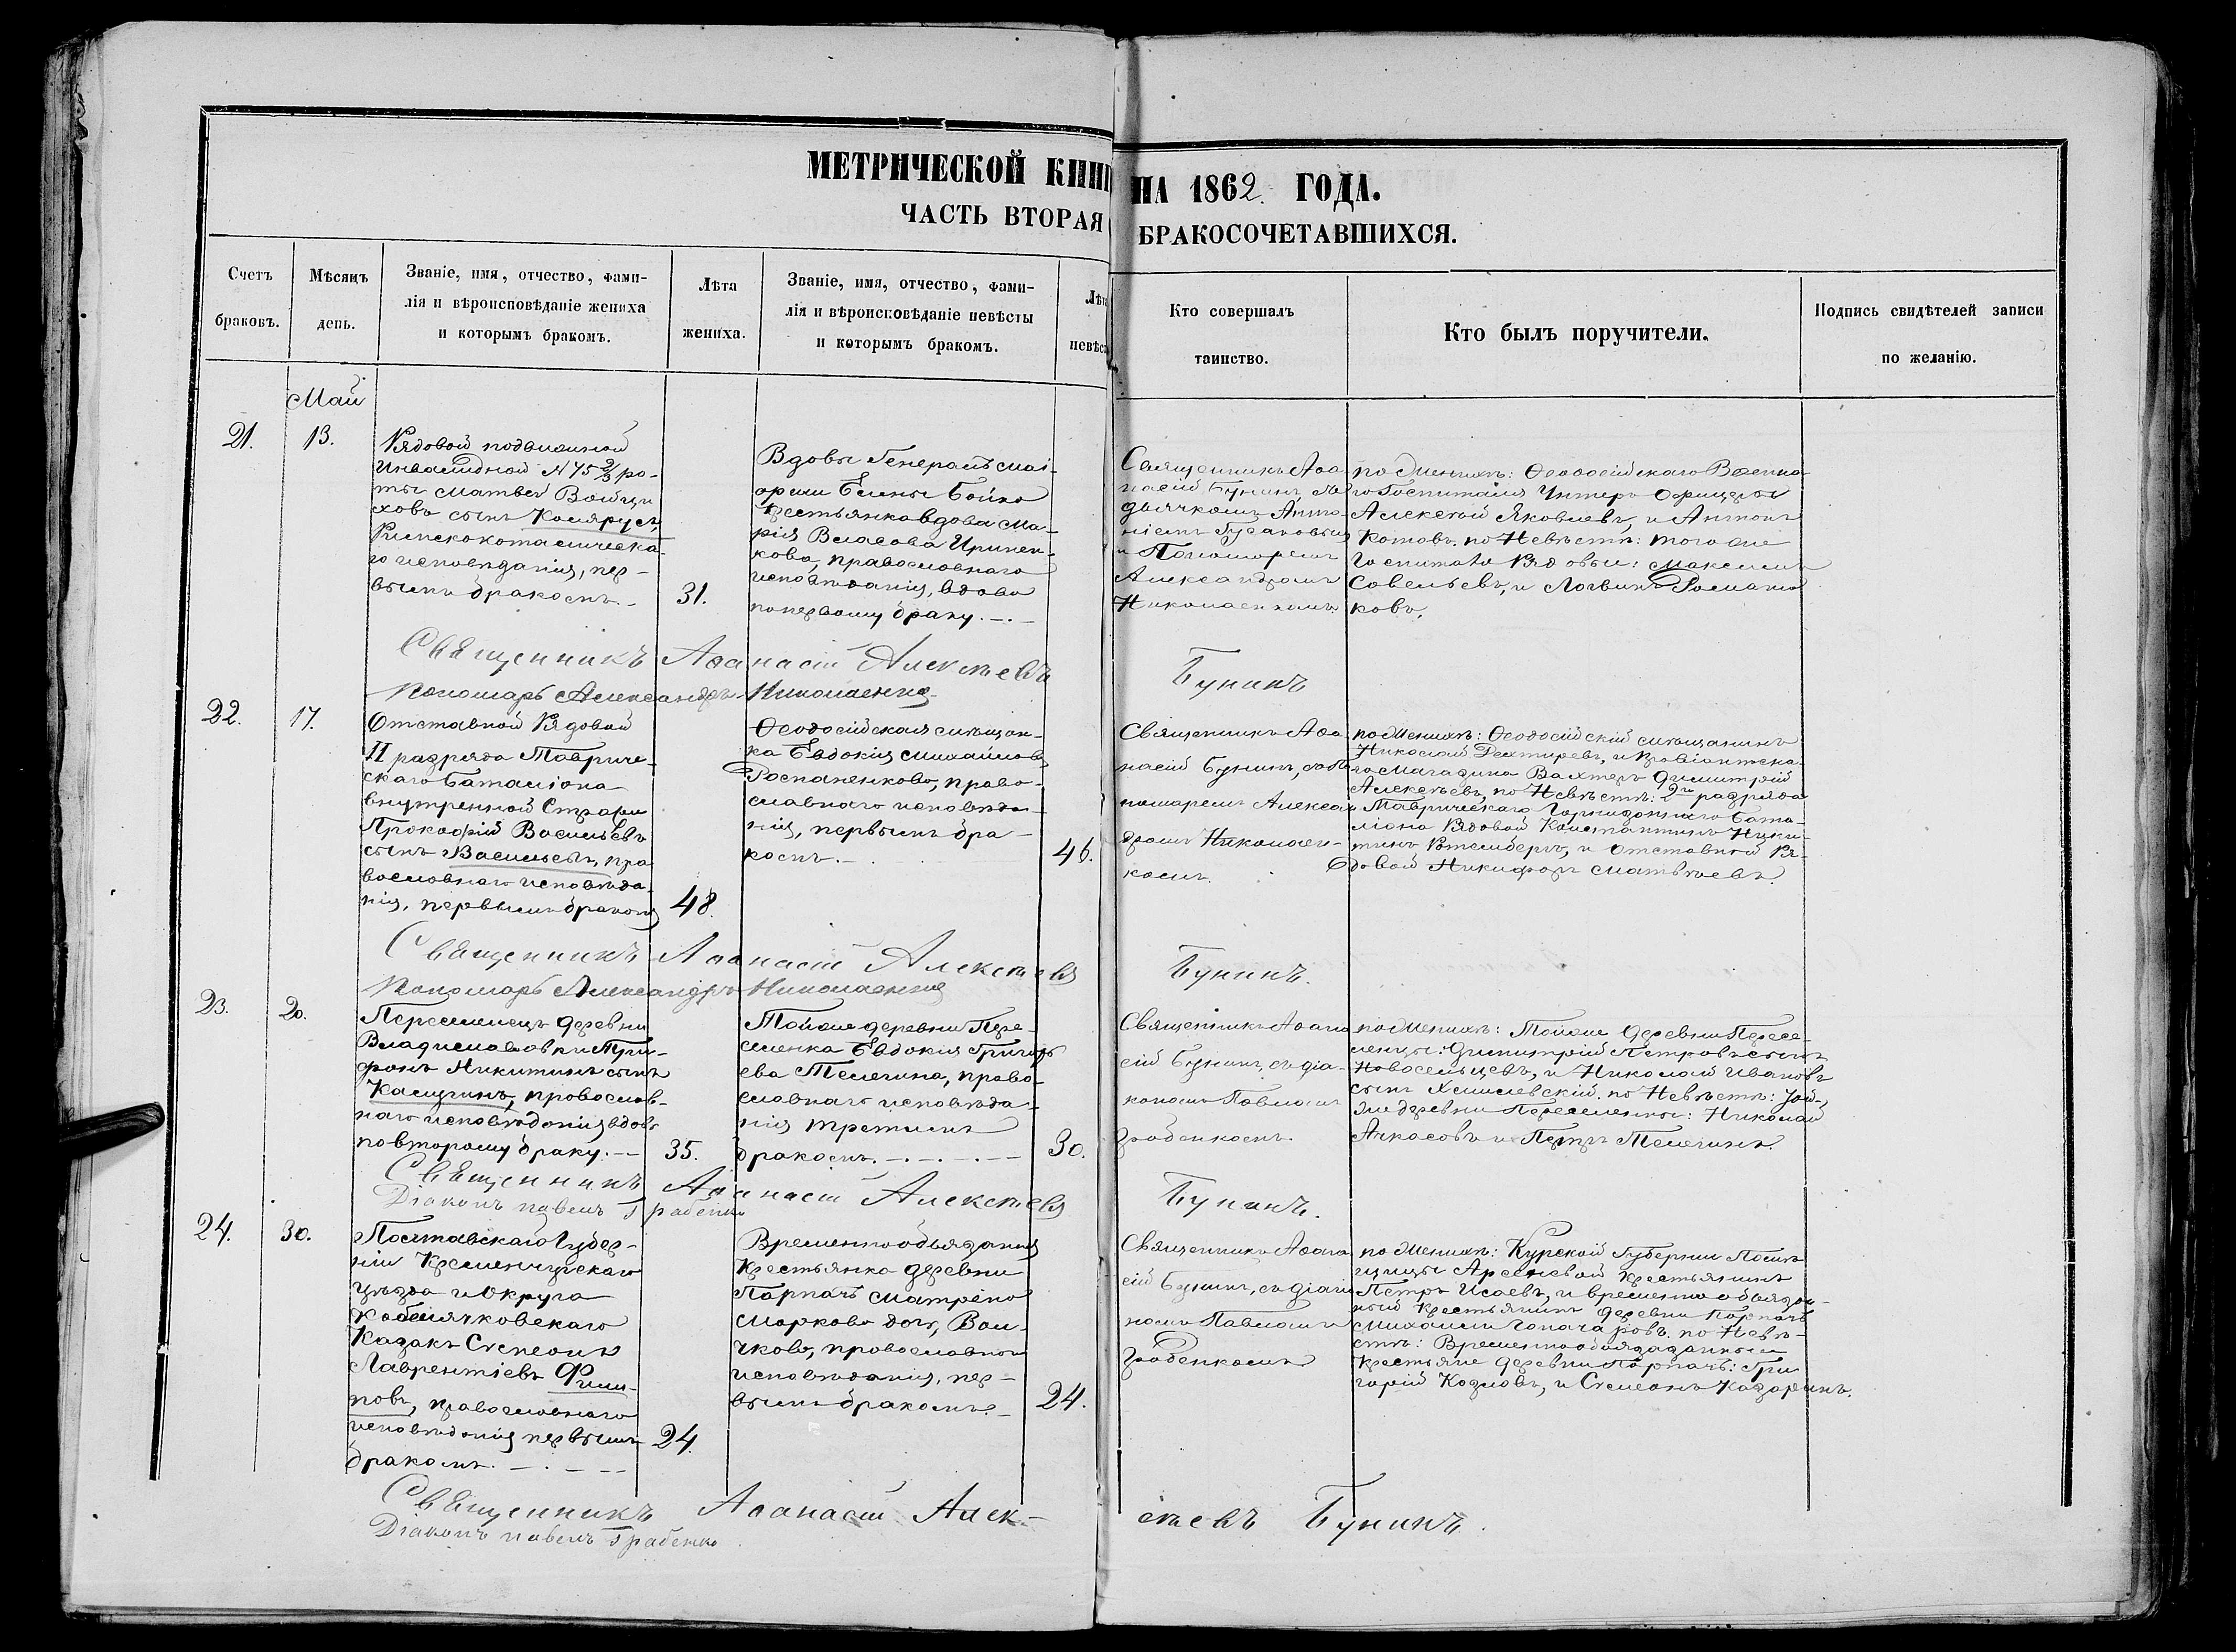 МЕТРИЧЕСКОЙ КНИГ
НА 1862 ГОДА.
ЧАСТЬ ВТОРАЯ
БРАКОСОЧЕТАВШИХСЯ.
Счетъ
браковъ.
Мѣсяцъ
день.
Званіе, имя, отчество, фами-
лія и вѣроисповѣданіе жениха
и которымъ бракомъ.
Лѣта
жениха.
Званіе, имя, отчество, фами-
лія и вѣроисповѣданіе невѣсты
и которымъ бракомъ.
Лѣт
невѣс
Кто совершалъ
таинство.
Кто былъ поручители.
Подпись свидѣтелей записи
по желанію.
Май
21.
13.
Рядовой подвижной
Инвалидной № 75 2/3 ро-
ты Матвей
сынъ
Римскокатолическа-
го исповѣданія, пер-
вымъ бракомъ.
31.
Вдовы Генералъ Маі-
орши Елены Бойко
Крестьянка вдова Ма-
рія Власова Иринен-
кова, православнаго
исповѣданія, вдова
по первому браку.
Священникъ Аѳа-
насій Бунинъ, съ
дьячкомъ Анто-
ніемъ Гусаковымъ
и Пономаремъ
Александромъ
Николаенкомъ.
по Женихѣ: Ѳеодосійскаго Военна-
го Госпиталя Унтеръ Офицеры
Алексѣй Яковлевъ, и Антонъ
Котовъ. по Невѣстѣ: того же
Госпиталя Рядовые: Максимъ
Савельевъ, и Логвинъ Романо
ковъ.
Священникъ Аѳанасій Алексѣевъ Бунинъ
Пономарь Александръ Николаенко
22.
17.
Отставной Рядовой
II разряда Тавриче-
скаго Баталіона
внутренней Стражи
Прокофій Васильевъ
сынъ Васильевъ, пра
вославнаго исповѣда-
нія, первымъ бракомъ
48.
Ѳеодосійская мѣщан-
ка Евдокія Михайлова
Распаненкова, право-
славнаго исповѣда-
нія, первымъ бра-
комъ.
46.
Священникъ Аѳа
насій Бунинъ, съ По
номаремъ Алексан
дромъ Николаен-
комъ.
по Женихѣ: Ѳеодосійскій мѣщанинъ
Николай Дехтиревъ, и Провіантска-
го Магазина Вахтеръ Димитрій
Алексѣевъ, по Невѣстѣ: 2го разряда
Таврическаго Гарнизоннаго Бата-
ліона Рядовой Константинъ Ники-
тинъ и Отставной Ря-
довой Никифоръ Матвѣевъ.
Священникъ Аѳанасій Алексѣевъ Бунинъ.
Пономарь Александръ Николаенко
23.
20.
Переселенецъ деревни
Владиславовки Три-
фонъ Никитинъ сынъ
Калугинъ, православ-
наго исповѣданія вдовъ
по второму браку.
35.
Тойже деревни Пере-
селенка Евдокія Григорь
ева Телегина, право-
славнаго исповѣда-
нія третьимъ
бракомъ.
30.
Священникъ Аѳана
сій Бунинъ, съ діа-
кономъ Павломъ
Грабенкомъ.
по Женихѣ: Тойже деревни Пересе-
ленцы: Димитрій Петровъ сынъ
Новосельцевъ, и Николай Ивановъ
сынъ Хмилевскій. по Невѣстѣ: той-
же деревни Переселенцы: Николай
Ачкасовъ и Петръ Телегинъ.
Священникъ Аѳанасій Алексѣевъ Бунинъ.
Діаконъ Павелъ Грабенко
24.
30.
Полтавскаго Губер-
ніи Кременчугскаго
уѣзда и Округа
Кобелячковскаго
Казакъ Симеонъ
Лаврентіевъ
православнаго
исповѣданія первымъ
бракомъ.
24
Временнообязанная
Крестьянка деревни
Парпачъ Матрона
Маркова дочь, Вол-
чкова, православнаго
исповѣданія, пер-
вымъ бракомъ.
24.
Священникъ Аѳана
сій Бунинъ, съ діако
номъ Павломъ
Грабенкомъ
по Женихѣ: Курской Губерніи Помѣ-
щицы Арсеневой Крестьянинъ
Петръ Исаевъ, и временнообязан-
ный Крестьянинъ деревни Парпачъ
Михаилъ Гончаровъ. по Невѣ-
стѣ: Временнообязанные
Крестьяне деревни Парпачъ: Гри
горій Козловъ, и Симеонъ Казаринъ.
Священникъ Аѳанасій Алек-
сѣевъ Бунинъ.
Діаконъ Павелъ Грабенко